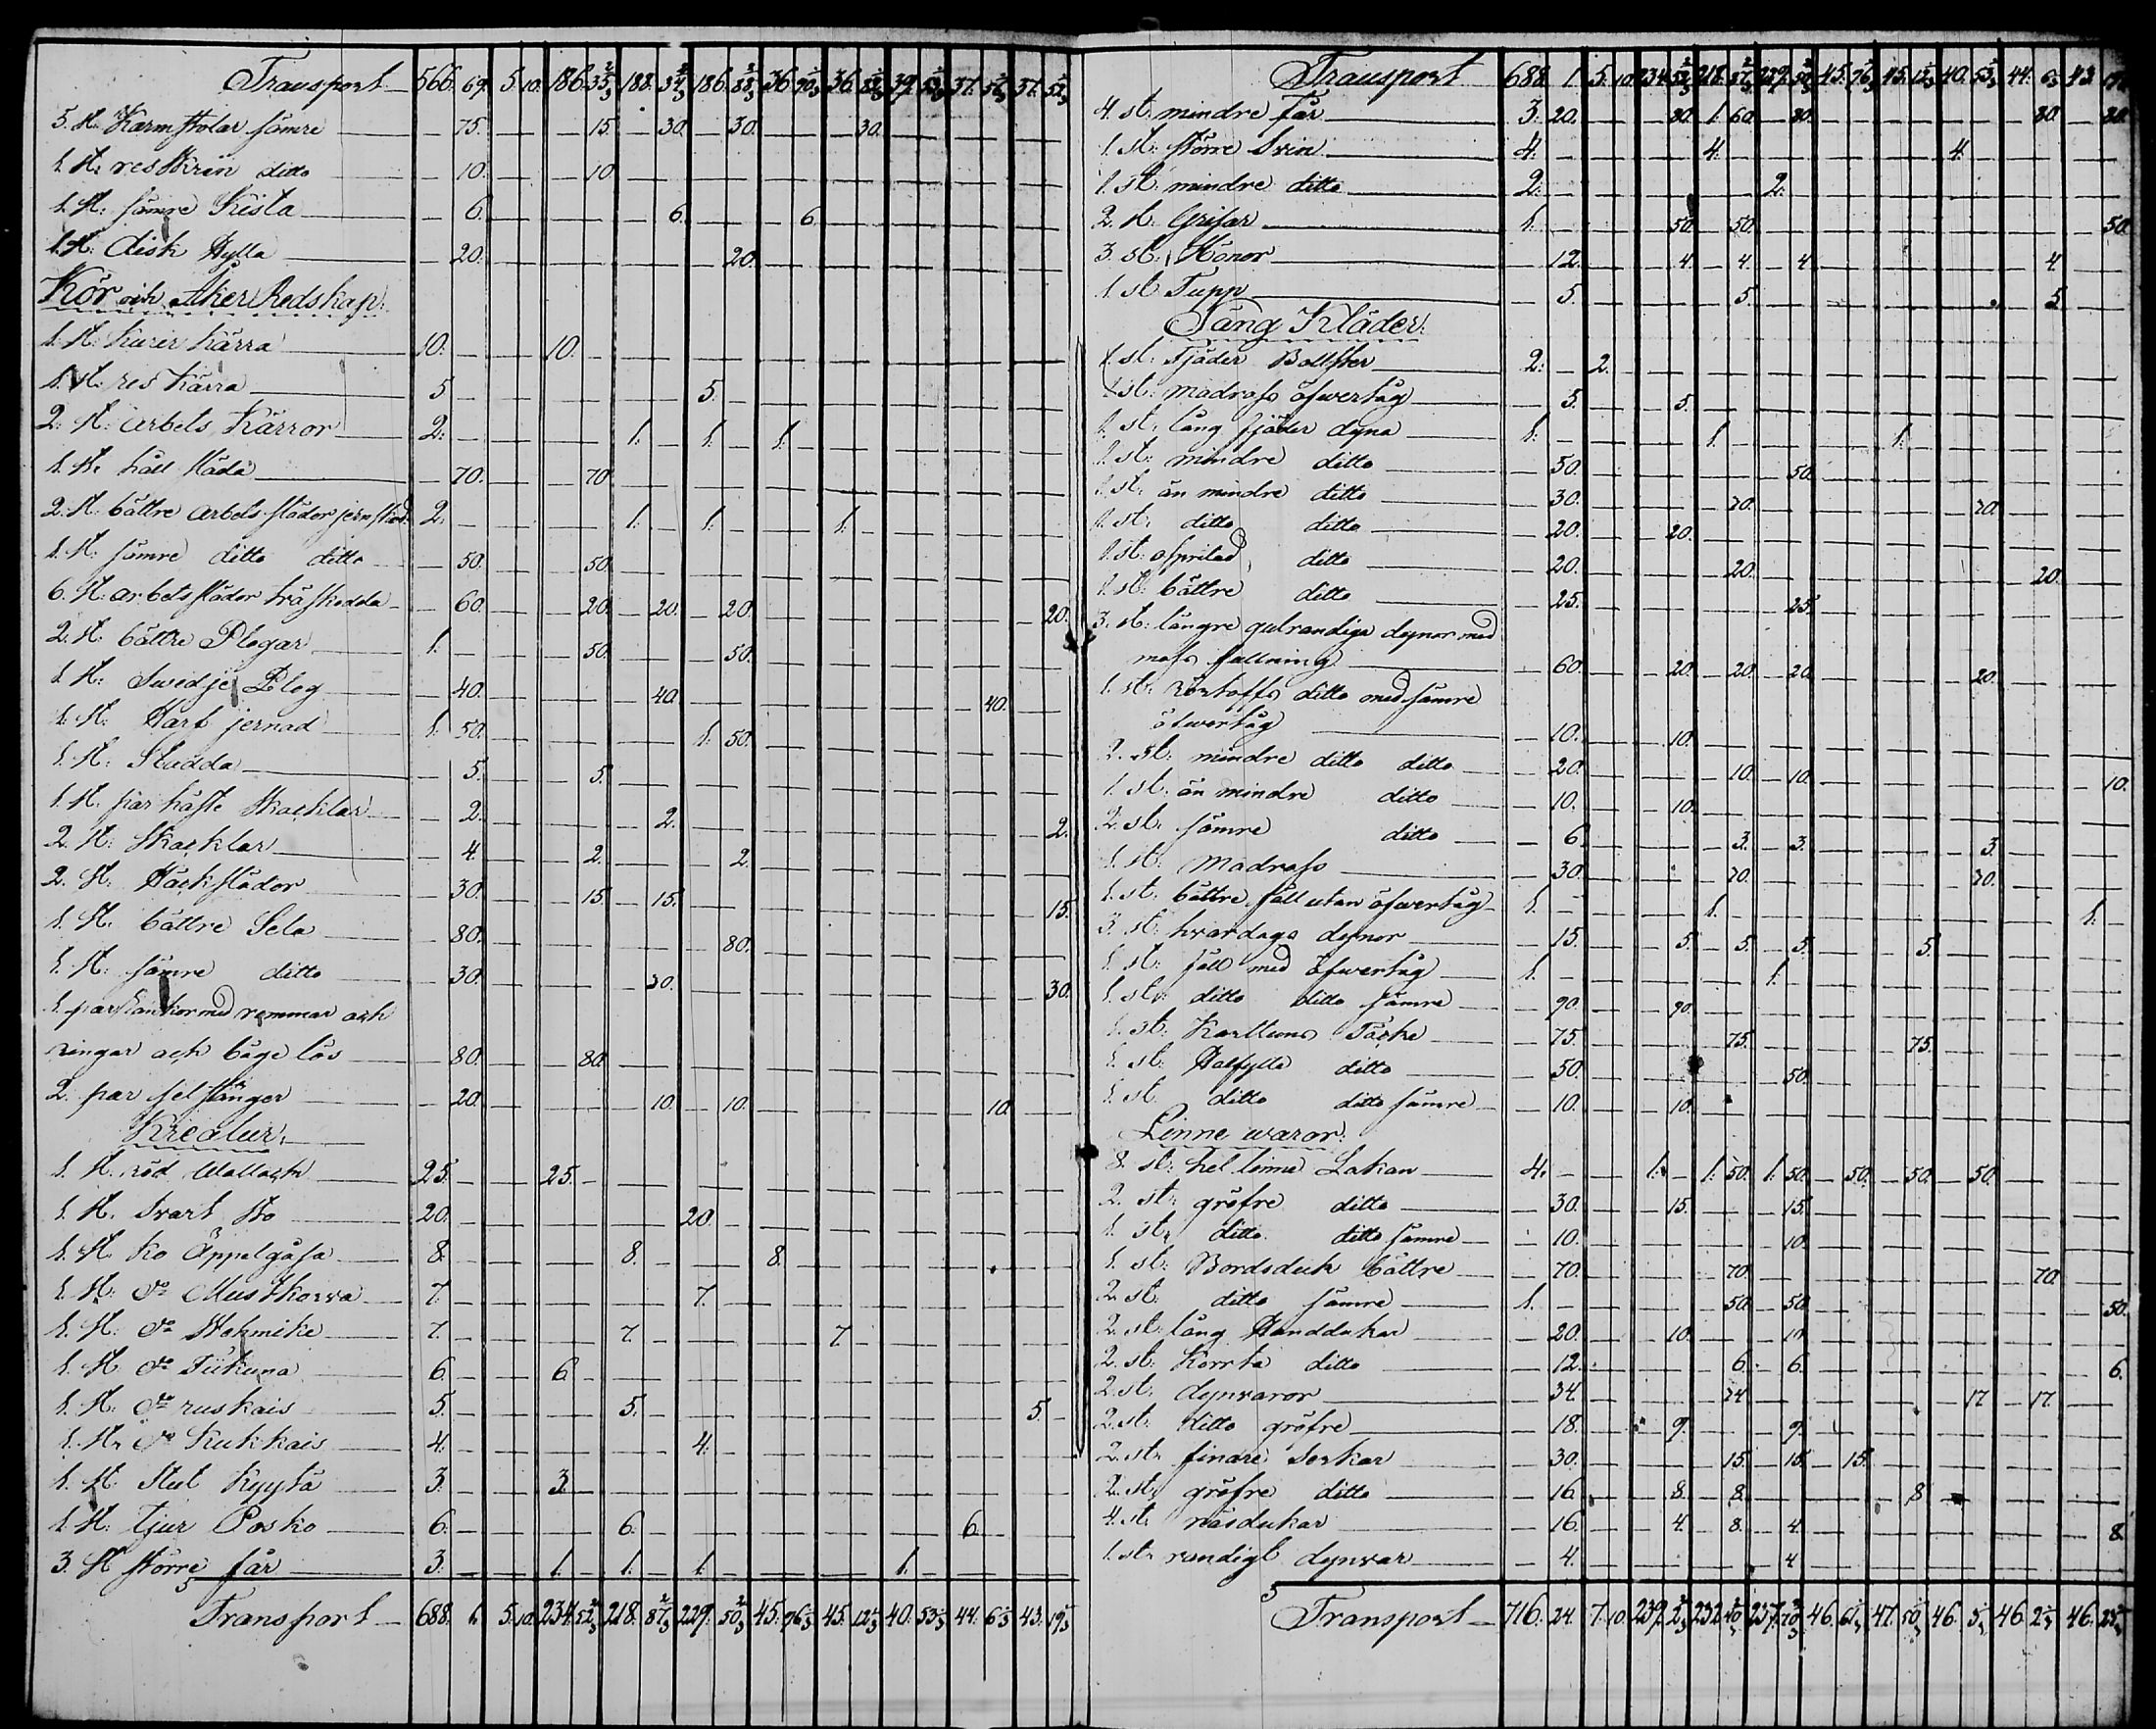 Transport 566. 69. 5. 10. 186. 188. 186. 36. 36. 39. 37. 37.
5. st. Karmstolar sämre — 75. — 15. — 30. — 30. — 30.
1. st. resskrin ditto — 10. — 10.
1. st. sämre Kista — 6. — 6. — 6.
1. st. disk Hylla — 20. — 20.
Kör och Åker Redskap.
1. st. Kurir kärra 10. — 10.
1. st. res kärra 5 — 5.
2. st. arbets Kärror 2. — 1. — 1. — 1.
1. st. håll släda — 70. — 70
2. st. bättre arbets slädor jernskodd 2. — 1. — 1. — 1.
1. st. sämre ditto ditto — 50. — 50.
6. st. arbetsslädor träskodda — 60. — 20. — 20. — 20. — 20.
2. st. bättre Plogar 1. — 50. — 50.
1. st. Swedje Plog — 40. — 40. — 40.
1. st. Harf jernad 1. 50. — 1. 50.
1. st. Sladda — 5. — 5.
1. st. par häste Skacklar — 2. — 2. — 2.
2. st. Skacklar — 4. — 2. — 2.
2. st. Häckslädor — 30. — 15. — 15. — 15.
1. st. bättre Sela — 80. — 80.
1. st. sämre ditto — 30. — 30. — 30.
1. par rankor med remmar och
ringar och båge lös — 80. — 80.
2. par selstänger — 20. — 10. — 10. — 10.
Kreatur.
1. st. röd Wallach 25. — 25.
1. st. svart sto 20. — 20
1. st. Ko Äppelgåsa 8. — 8. — 8.
1. st. do Mustkorva 7. — 7.
1. st. do Hahmike 7. — 7. — 7
1. st. do Tiikuna 6. — 6.
1. st. do ruskais 5. — 5. — 5.
1. st. do Kukkais 4. — 4.
1. st. Stut Kyytä 3. — 3.
1. st. tjur Posko 6. — 6. — 6.
3. st. större får 3. — 1. — 1. — 1. — 1.
Transport 688. 1. 5. 10. 234. 218. 229. 45. 45. 40. 44. 43.
Transport 688. 1. 5. 10. 234. 218. 229. 45. 45. 40. 44. 43
4. st. mindre Får 3. 20. — 80. 1. 60. — 80. — 80. — 80.
1. st. större Svin 4. — 4. — 4.
1. st. mindre ditto 2. — 2.
2. st. Grisar 1. — 50. — 50. — 50.
3. st. Hönor — 12. — 4. — 4. — 4. — 4
1. st. Tupp — 5. — 5. — 5.
Säng Kläder.
1. st. Fjäder Bollster 2. — 2.
1. st. madrass öfwertåg — 5. — 5.
1. st. lång fjäder dyna 1. — 1. — 1.
1. st. mindre ditto — 50. — 50.
1. st. än mindre ditto — 30. — 30. — 30.
1. st. ditto ditto — 20. — 20.
1. st. ditto — 20. — 20. — 20.
1. st. bättre ditto — 25. — 25.
3. st. längre gulrandiga dynor med
moss fallning — 60. — 20. — 20. — 20. — 20.
1. st. ditto med sämre
öfwertåg — 10. — 10.
2. st. mindre ditto ditto — 20. — 10. — 10. — 10.
1. st. än mindre ditto — 10. — 10.
2. st. sämre ditto — 6. — 3. — 3. — 3.
1. st. Madrass — 30. — 30. — 30.
1. st. bättre fäll utan öfwertåg 1. — 1. — 1.
3. st. hvardags dynor — 15. — 5. — 5. — 5. — 5.
1. st. fäll med öfwertåg 1. — 1.
1. st. ditto ditto sämre — 90. — 90.
1. st. Karttuns Täcke — 75. — 75. — 75.
1. st. Halfylle ditto — 50. — 50.
1. st. ditto ditto sämre — 10. — 10.
Linne waror.
8. st. hel linne Lakan 4. — 1. — 1. 50. 1. 50. — 50. — 50. — 50.
2. st. gröfre ditto — 30. — 15. — 15.
1. st. ditto ditto sämre — 10. — 10.
1. st. Bordsduk bättre — 70. — 70. — 70.
2. st. ditto sämre 1. — 50. — 50. — 50.
2. st. lång Handdukar — 20. — 10. — 10
2. st. Korrta ditto — 12. — 6. — 6. — 6.
2. st. dynvaror — 34. — 34. — 17 — 17.
2. st. ditto gröfre — 18. — 9. — 9.
2. st. finare serkar — 30. — 15. — 15. — 15.
2. st. gröfre ditto — 16. — 8. — 8. — 8
4. st. näsdukar — 16. — 4. — 8. — 4. — 8.
1. st. randigt dynvar — 4. — 4
Transport 716. 24. 7. 10. 239. 232. 237. 46. 47. 46. 46. 46.